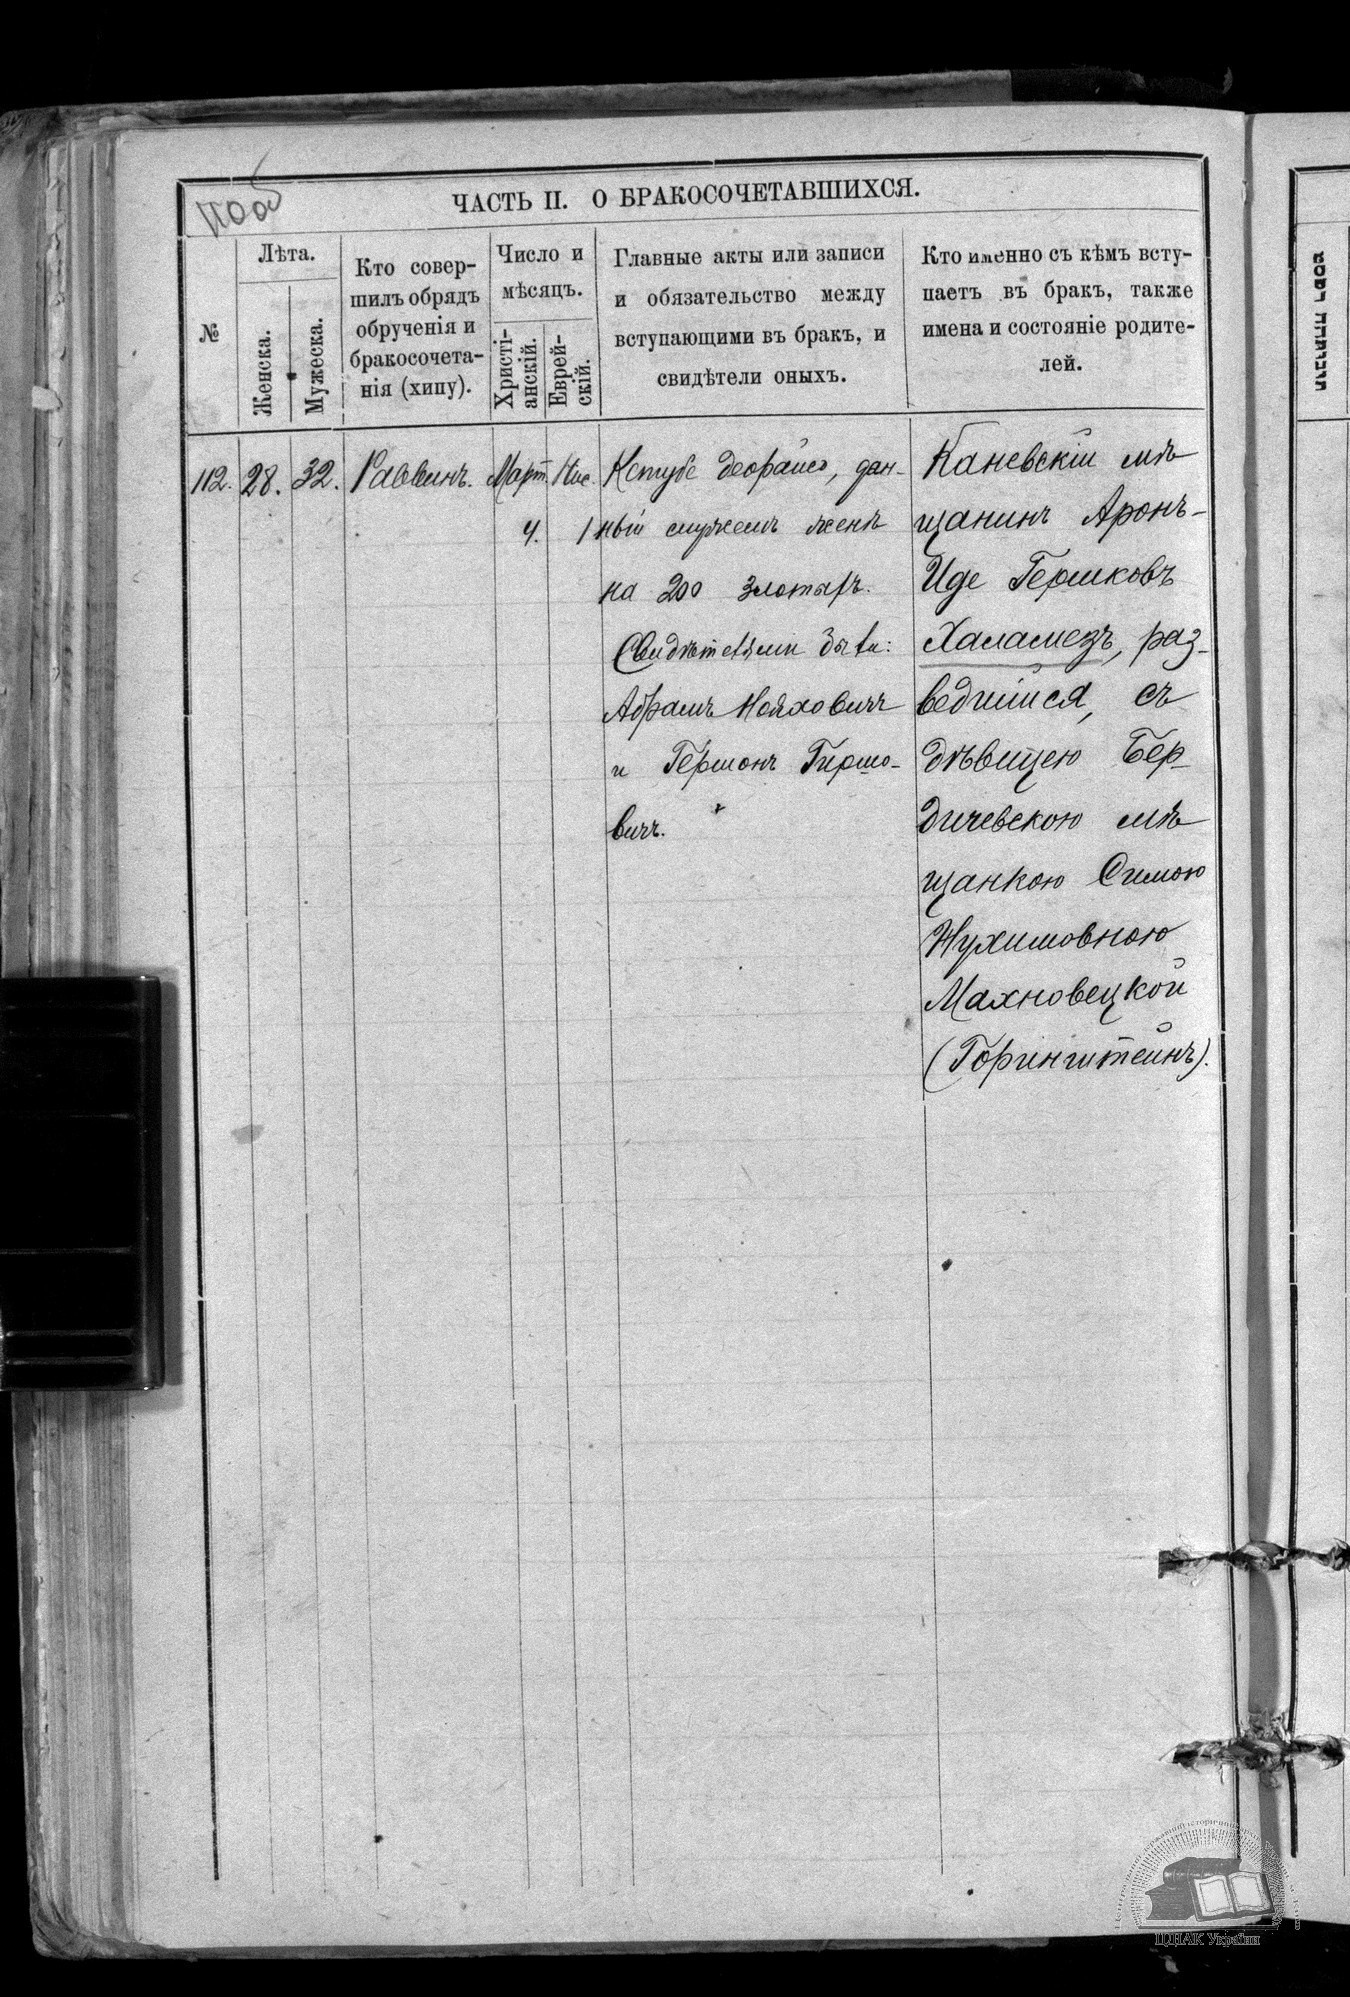 1106
ЧАСТЬ II. О БРАКОСОЧЕТАВШИХСЯ.
№
Лѣта.
Женска.
Мужеска.
Кто совер-
шилъ обрядъ
обрученія и
бракосочета-
нія (хипу).
Число и
мѣсяцъ.
Христі-
анскій.
Еврей-
скій.
Главные акты или записи
и обязательство между
вступающими въ бракъ, и
свидѣтели оныхъ.
Кто именно съ кѣмъ всту-
паетъ въ бракъ, также
имена и состояніе родите-
лей.
112.
28.
32.
Раввинъ.
Март.
4.
Нис.
1
Кетубе деорайсо, дан-
ный мужемъ женѣ
на 200 злотыхъ.
Свидѣтелями были:
Абрамъ Нояховичъ
и Гершонъ Гиршо-
вичъ.
Каневскій мѣ
щанинъ Аронъ-
Иде Гершковъ
Халамезъ, раз-
ведшійся, съ
дѣвицею Бер-
дичевскою мѣ
щанкою Симою
Нухимовною
Махновецкой
(Горинштейнъ).
ЦДІАК України